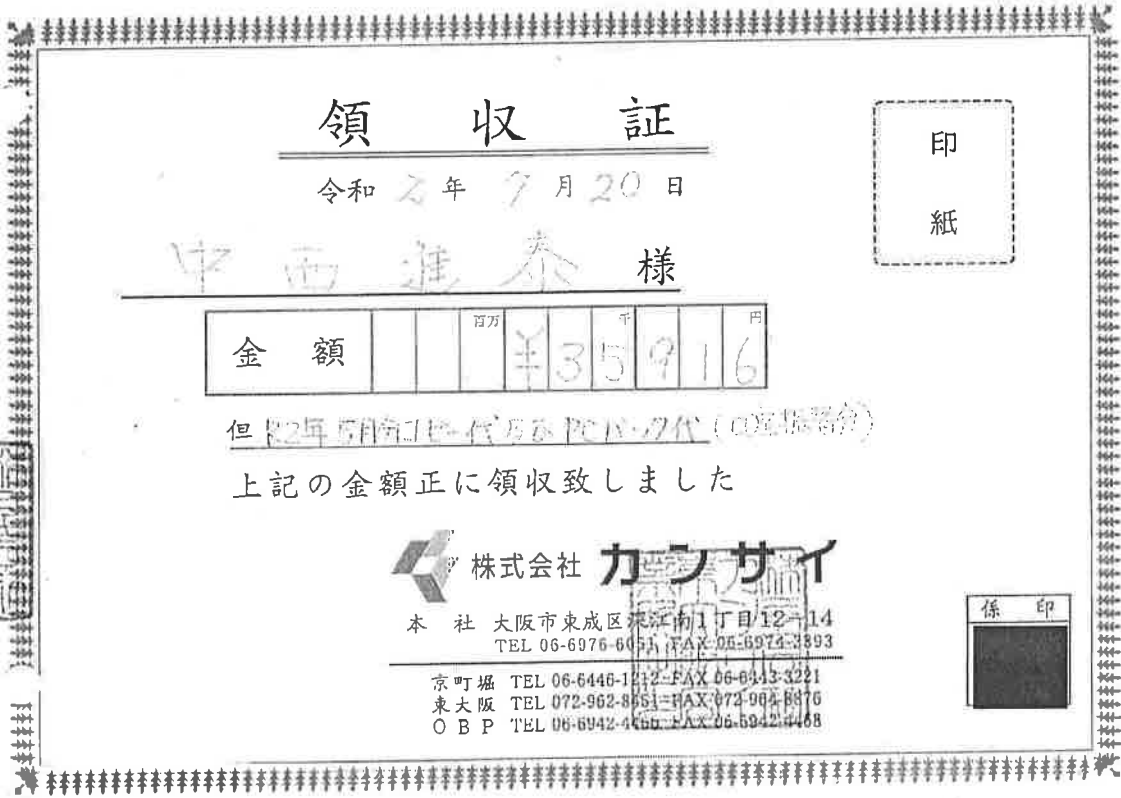 領収証
印紙
令和 2年 9月20日
中西進泰 様
金額 百万 千 円 ¥35916
但 R2年 コピー代 PC
上記の金額正に領収致しました
株式会社 カンサイ
本社 大阪市東成区深江南1丁目12-14
TEL 06-6976-6051 FAX 06-6974-3393
係印
京町堀 TEL 06-6446-1212 FAX 06-6443-3221
東大阪 TEL 072-962-8451 FAX 072-964-8876
OBP TEL 06-6942-4466 FAX 06-6942-4468